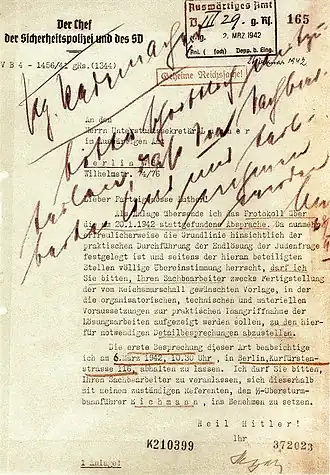 Der Chef
der Sicherheitspolizei und des SD
IV B 4 - 1456/41 gRs. (1344)
Auswärtiges Amt
D III 29 g. Rs.
165
2. MRZ 1942
Geheime Reichssache!
An den
Herrn Unterstaatssekretär Luther
Auswärtigen Amt
Berlin
Wilhelmstr. 74/76
Lieber Parteigenosse Luther!
Als Anlage übersende ich das Protokoll über
die am 20.1.1942 stattgefundene Besprechung. Da nunmehr
erfreulicherweise die Grundlinie hinsichtlich der
praktischen Durchführung der Endlösung der Judenfrage
festgelegt ist und seitens der hieran beteiligten
Stellen völlige Übereinstimmung herrscht, darf ich
Sie bitten, Ihren Sachbearbeiter zwecks Fertigstellung
der vom Reichsmarschall gewünschten Vorlage, in der
die organisatorischen, technischen und materiellen
Voraussetzungen zur praktischen Inangriffnahme der
Lösungsarbeiten aufgezeigt werden sollen, zu den hier-
für notwendigen Detailbesprechungen abzustellen.
Die erste Besprechung dieser Art beabsichtige
ich am 6. März 1942, 10.30 Uhr, in Berlin, Kurfürsten-
strasse 116, abhalten zu lassen. Ich darf Sie bitten,
Ihren Sachbearbeiter zu veranlassen, sich dieserhalb
mit meinem zuständigen Referenten, dem SS-Obersturm-
bannführer Eichmann, ins Benehmen zu setzen.
Heil Hitler!
Ihr
K210399
372023
1 Anlage!